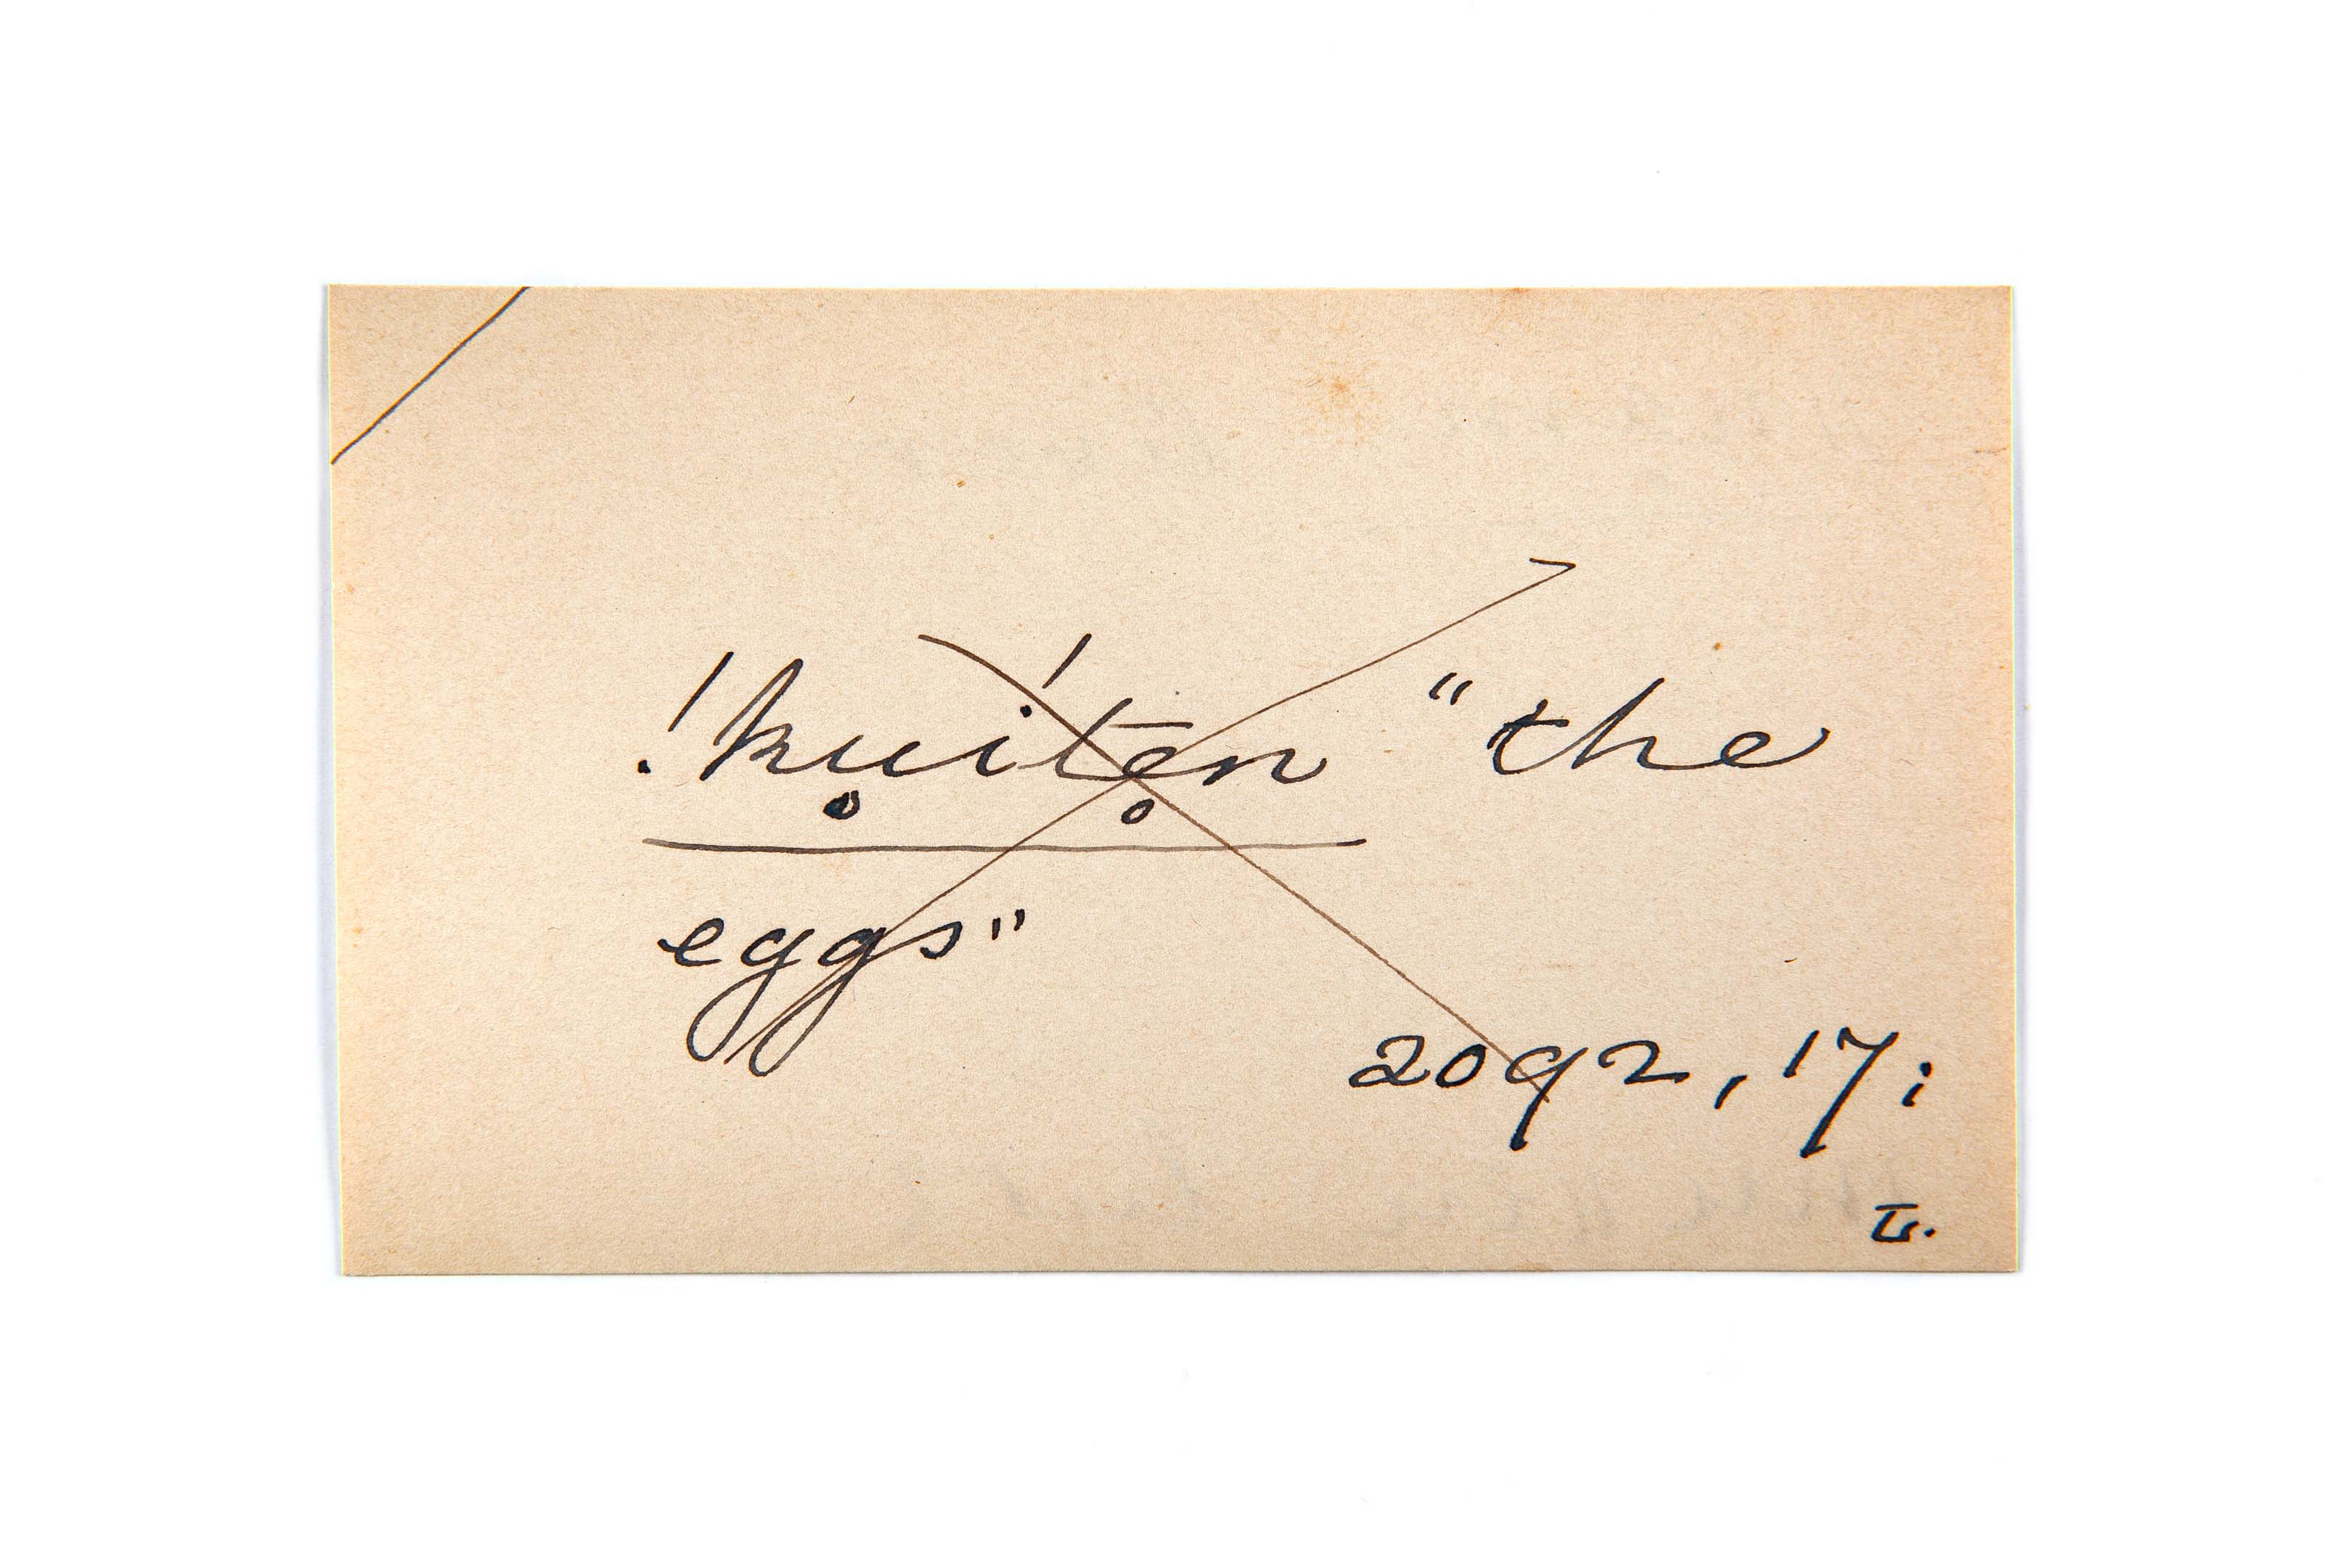 !ku̥íte̥n "the
eggs"
2092, 17;
L.